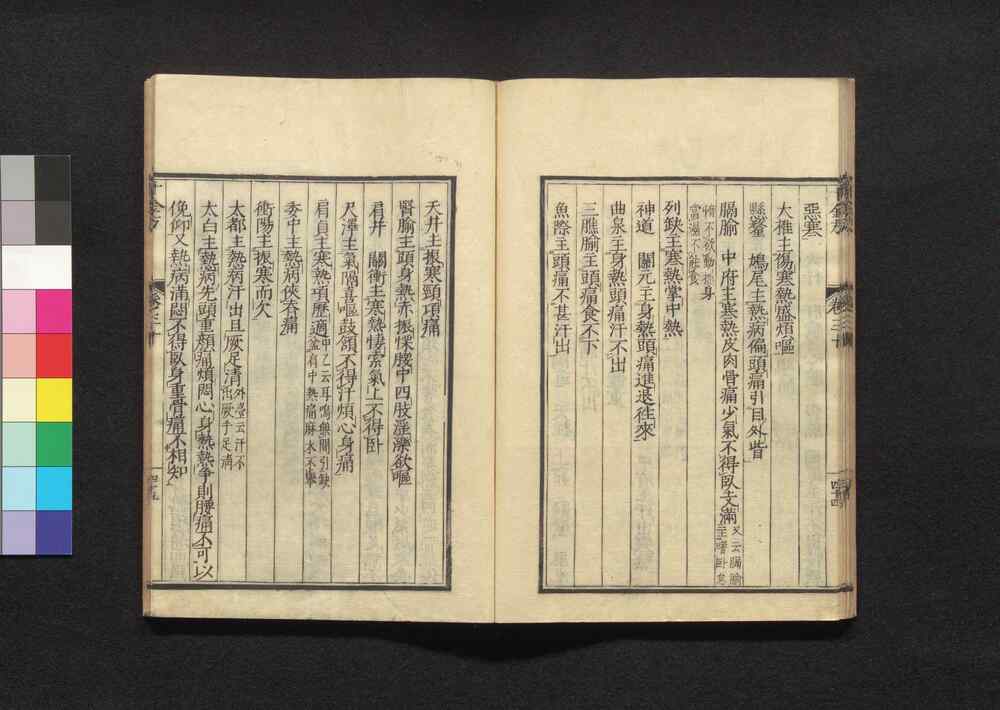 惡寒
大椎主傷寒熱盛煩嘔
懸釐　鳩尾主熱病偏頭痛引目外眥
膈腧　中府主寒熱皮肉骨痛少氣不得臥支滿又云膈腧主嗜卧怠
惰不欲動搖身當濕不能食
列缺主寒熱掌中熱
神道　關元主身熱頭痛進退往來
曲泉主身熱頭痛汗不出
三膲腧主頭痛食不下
魚際主頭痛不甚汗出
天井主振寒頸項痛
腎腧主頭身熱赤振慄腰中四肢淫濼欲嘔
肩井　關衝主寒熱悽索氣上不得卧
尺澤主氣隔喜嘔鼓頷不得汗煩心身痛
肩貞主寒熱項歷適甲乙云耳鳴無聞引缺盆肩中熱痛麻木不舉
委中主熱病俠脊痛
衝陽主振寒而欠
大都主熱病汗出且厥足清外臺云汗不出厥手足清
太白主熱病先頭重顏痛煩悶心身熱熱爭則腰痛不可以
俛仰又熱病滿悶不得臥身重骨痛不相知
卷三十
四十四
卷三十
四十五